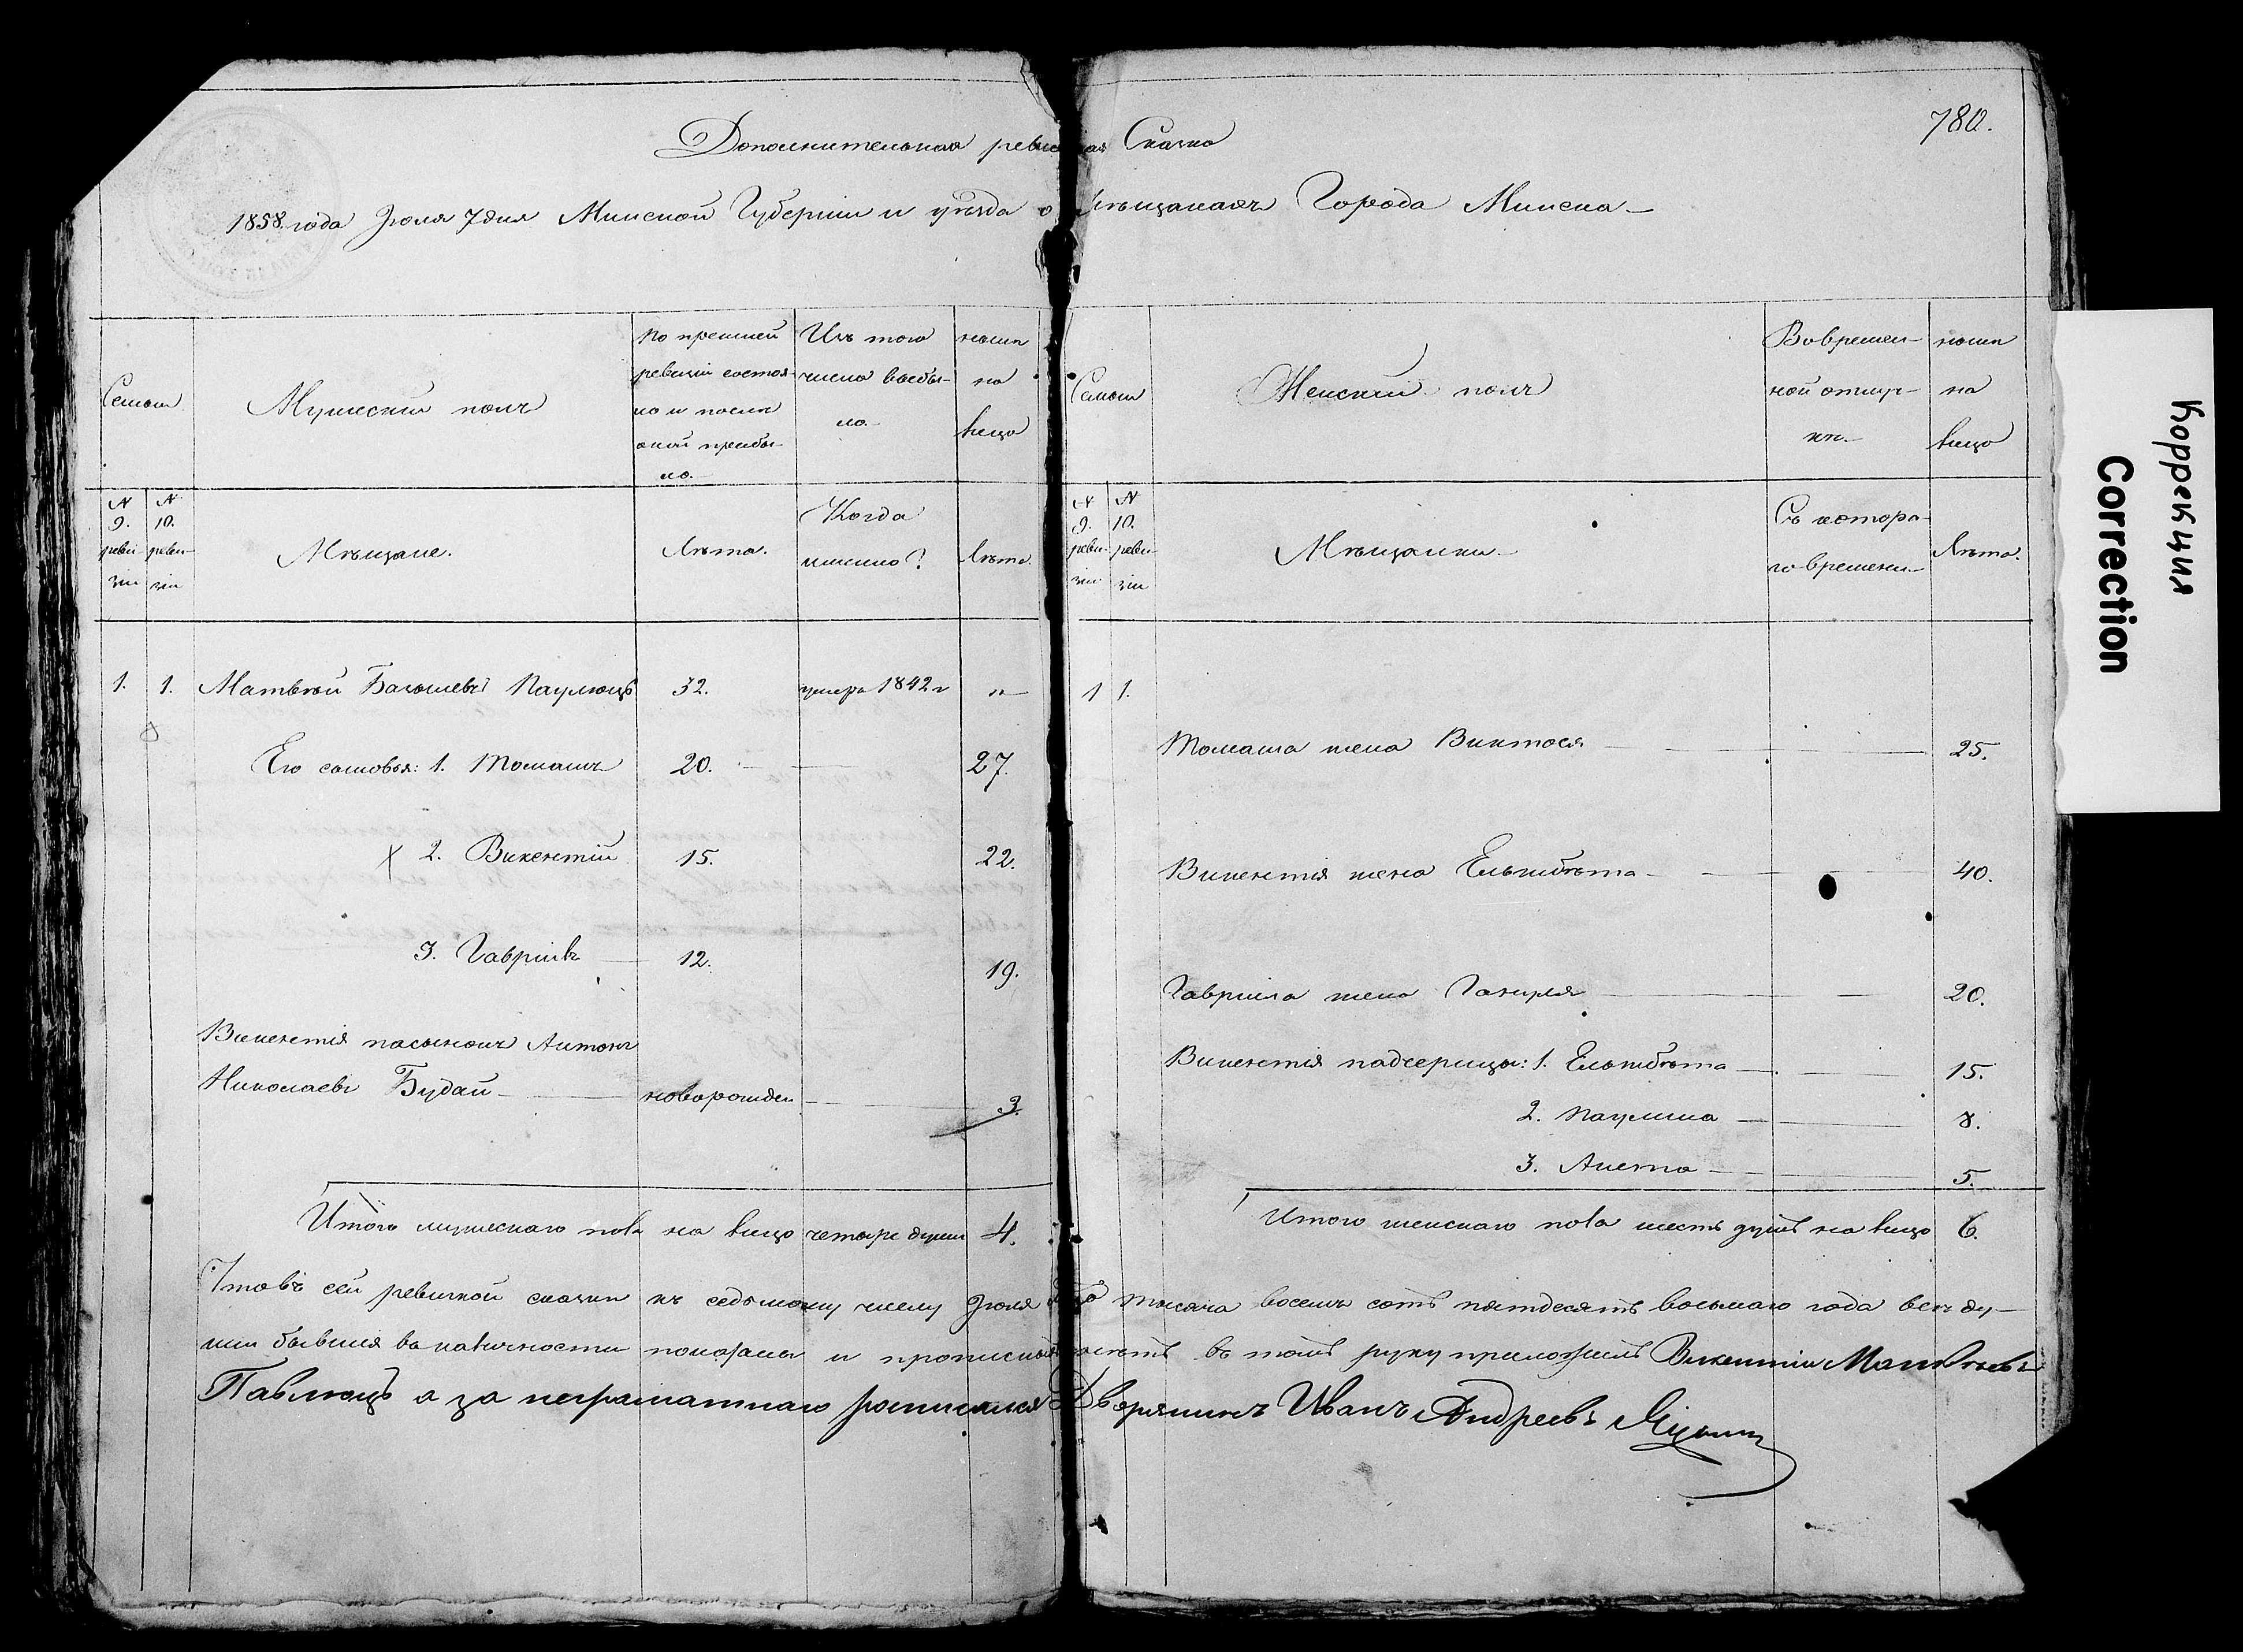 780.
Дополнительная ревизская Сказка
1858. года Июля 7 дня Минской Губернии и уезда о мѣщанахъ Города Минска
Семьи
Мужеский полъ
По прежней ревизіи состояло и после оной прибыло.
Изъ того числа выбыло.
нынѣ на лицо
№ 9. ревизіи
№ 10. ревизіи
Мѣщане.
Лѣта.
Когда именно?
Лѣта
1. 1. Матвѣй Павлюць 32. умеръ 1842 г "
Его сыновья: 1. Томашъ 20. 27.
2. Викентій 15. 22.
3. Гавріилъ 12. 19.
Викентія пасынокъ Антонъ
Николаевъ Будай новорожден 3.
Итого мужескаго пола на лицо четыре души 4.
Семьи
Женский полъ
Во временной отлучкѣ.
нынѣ на лицо
№ 9. ревизіи
№ 10. ревизіи
Мѣщанки
Съ котораго времени
Лѣта.
1 1.
Томаша жена Виктося 25.
Викентія жена Ельжбѣта 40.
Гавріила жена 20.
Викентія падчерицы: 1. Ельжбѣта 15.
2. Паулина 8.
3. Анета 5.
Итого женскаго пола шесть душъ на лицо 6.
Что въ сей ревизкой сказки къ седьмому числу Июля тысяча восемъ сотъ пятдесятъ восьмаго года всѣ ду-
ши бывшия въ наличности показаны и въ томъ руку приложилъ Викентій Матвѣевъ
Павлюць а за неграматнаго росписался Дворянинъ Иванъ Андреевъ
Коррекция
Correction